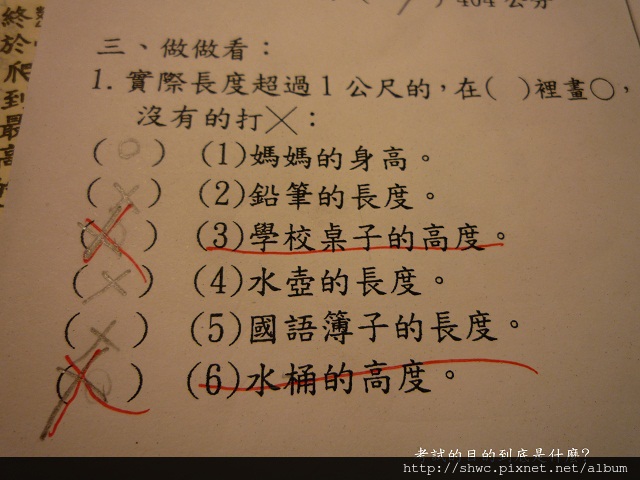 ) 464公分
終於爬到最高
三、做做看：
1. 實際長度超過1公尺的，在( )裡畫○，
沒有的打╳：
(○) (1)媽媽的身高。
(×) (2)鉛筆的長度。
( ) (3)學校桌子的高度。
(×) (4)水壺的長度。
(×) (5)國語簿子的長度。
( ) (6)水桶的高度。
考試的目的到底是什麼?
http://shwc.pixnet.net/album